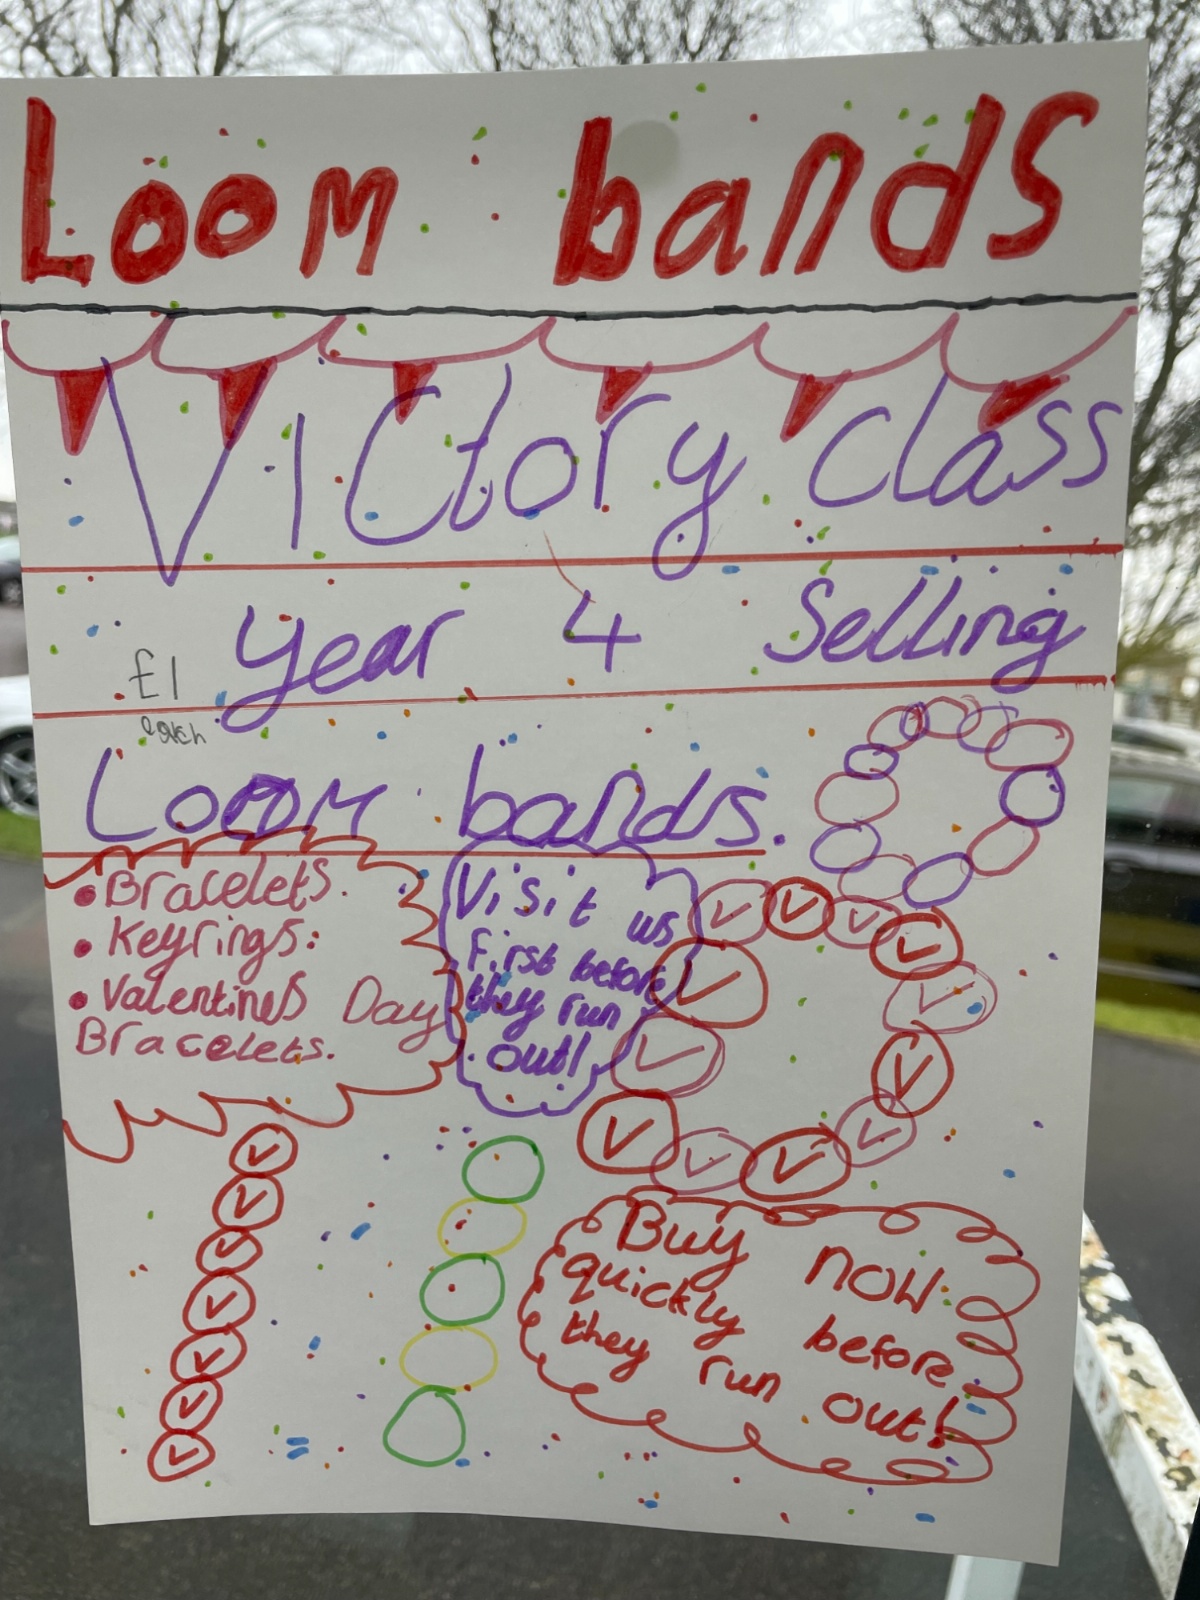 Loom bands
Victory class
year 4 Selling
£1
each
Loom bands.
• Bracelets.
• Keyrings:
• Valentines Day
Bracelets.
Visit us
first before
they run
out!
Buy now
quickly before
they run out!